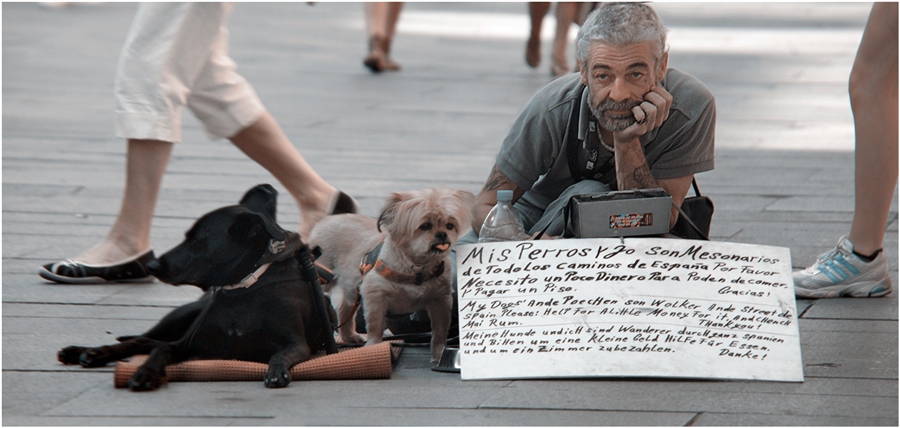 Mis Perros y Jo Son Mesonarios
de Todo Los Caminos de España Por Favor
Necesito un Poco Dinero Para Poden de comer.
y Pagar un Piso. Gracias!
My Dogs' Ande Poechen son Wolker Ande Street de
Spain Please: Help For A Little Money For it, And Hench
Mai Rum. Thank you!
Meine Hunde und ich sind Wanderer durch ganz spanien
und Bitten um eine kleine Geld Hilfe Für Essen.
und um ein Zimmer zubezahlen. Danke!